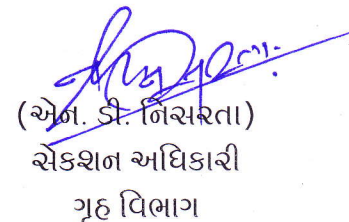 (એન. ડી. નિસરતા)
સેકશન અધિકારી
ગૃહ વિભાગ